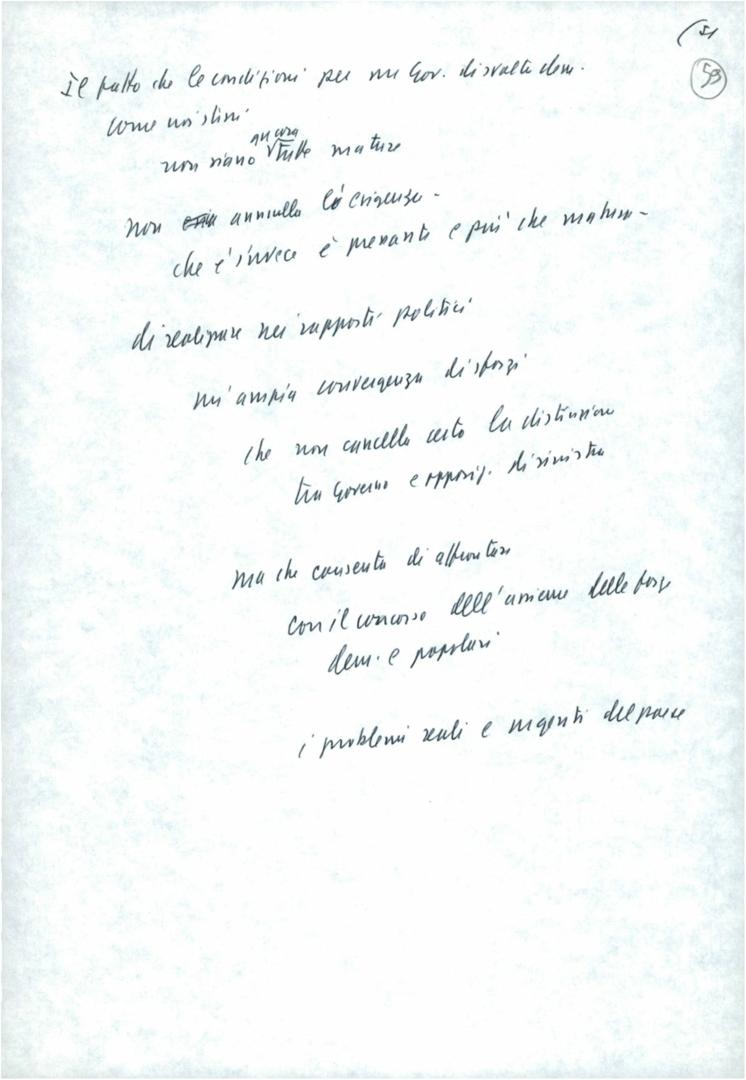 51
53
Il fatto che le condizioni per un Gov. di svolta dem.
come noi
ancora
non siano tutte mature
non annulla l'esigenza -
che è invece è pressante e più che matura -
di realizzare nei rapporti politici
un'ampia convergenza di sforzi
che non cancella certo la distinzione
tra Governo e opposiz. di sinistra
ma che consenta di affrontare
con il concorso dell'insieme delle forze
dem. e popolari
i problemi reali e urgenti del paese